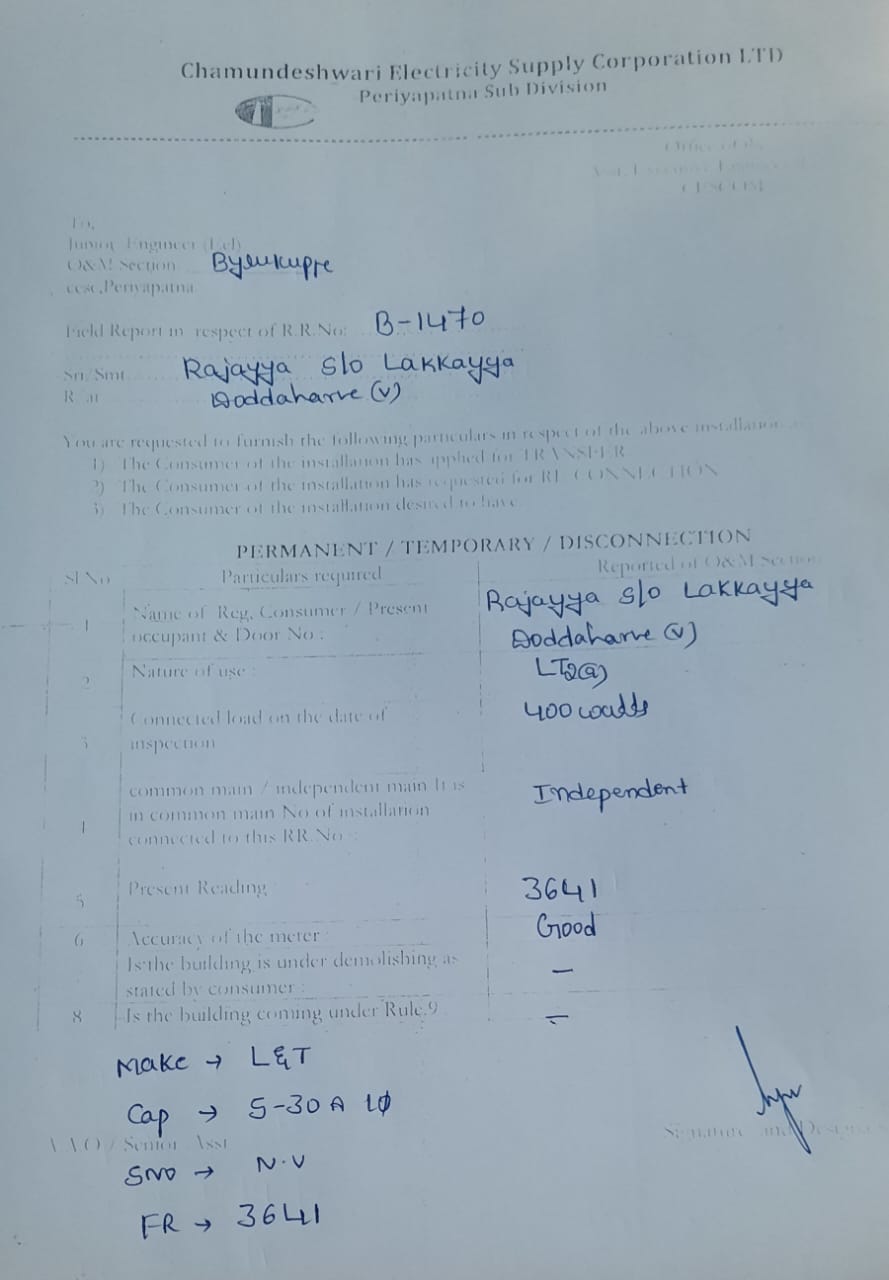 Chamundeshwari Electricity Supply Corporation LTD
Periyapatna Sub Division
Office of the
CESCOM
To,
Junior Engineer (Lel)
O&M Section Bylukuppe
cesc,Periyapatna
Field Report in respect of R.R.No: B-1470
Sri/Smt Rajayya S/o Lakkayya
R at Doddaharve (v)
You are requested to furnish the following particulars in respect of the above installation
1) The Consumer of the installation has applied for TRANSFER
2) The Consumer of the installation has requested for RE CONNECTION
3) The Consumer of the installation desired to have
PERMANENT / TEMPORARY / DISCONNECTION
Sl No Particulars required Reported of O&M Section
1 Name of Reg, Consumer / Present occupant & Door No : Rajayya S/o Lakkayya Doddaharve (v)
2 Nature of use : LT2(a)
3 Connected load on the date of inspection 400 watts
4 common main / independent main It is in common main No of installation connected to this RR.No : Independent
5 Present Reading 3641
6 Accuracy of the meter : Good
Is the building is under demolishing as stated by consumer : –
8 Is the building coming under Rule.9 –
Make → L&T
Cap → 5-30 A 1Ø
A A O / Senior Asst
Signature and
SNO → N.V
FR → 3641